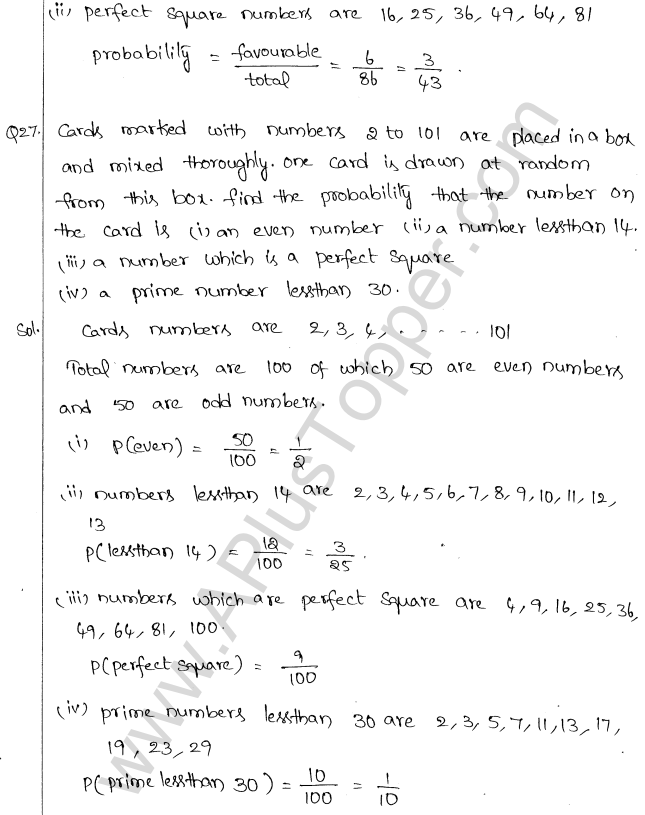 (ii) perfect square numbers are 16, 25, 36, 49, 64, 81
probability = favourable/total = 6/86 = 3/43 .
Q27. Cards marked with numbers 2 to 101 are placed in a box
and mixed thoroughly. one card is drawn at random
from this box. find the probability that the number on
the card is (i) an even number (ii) a number lessthan 14.
(iii) a number which is a perfect square
(iv) a prime number lessthan 30.
Sol. Cards numbers are 2, 3, 4, . - - - . . 101
Total numbers are 100 of which 50 are even numbers
and 50 are odd numbers.
(i) P(even) = 50/100 = 1/2
(ii) numbers lessthan 14 are 2, 3, 4, 5, 6, 7, 8, 9, 10, 11, 12,
13
P(lessthan 14) = 12/100 = 3/25 .
(iii) numbers which are perfect square are 4, 9, 16, 25, 36,
49, 64, 81, 100.
P(perfect square) = 9/100
(iv) prime numbers lessthan 30 are 2, 3, 5, 7, 11, 13, 17,
19, 23, 29
P(prime lessthan 30) = 10/100 = 1/10
www.APlusTopper.com